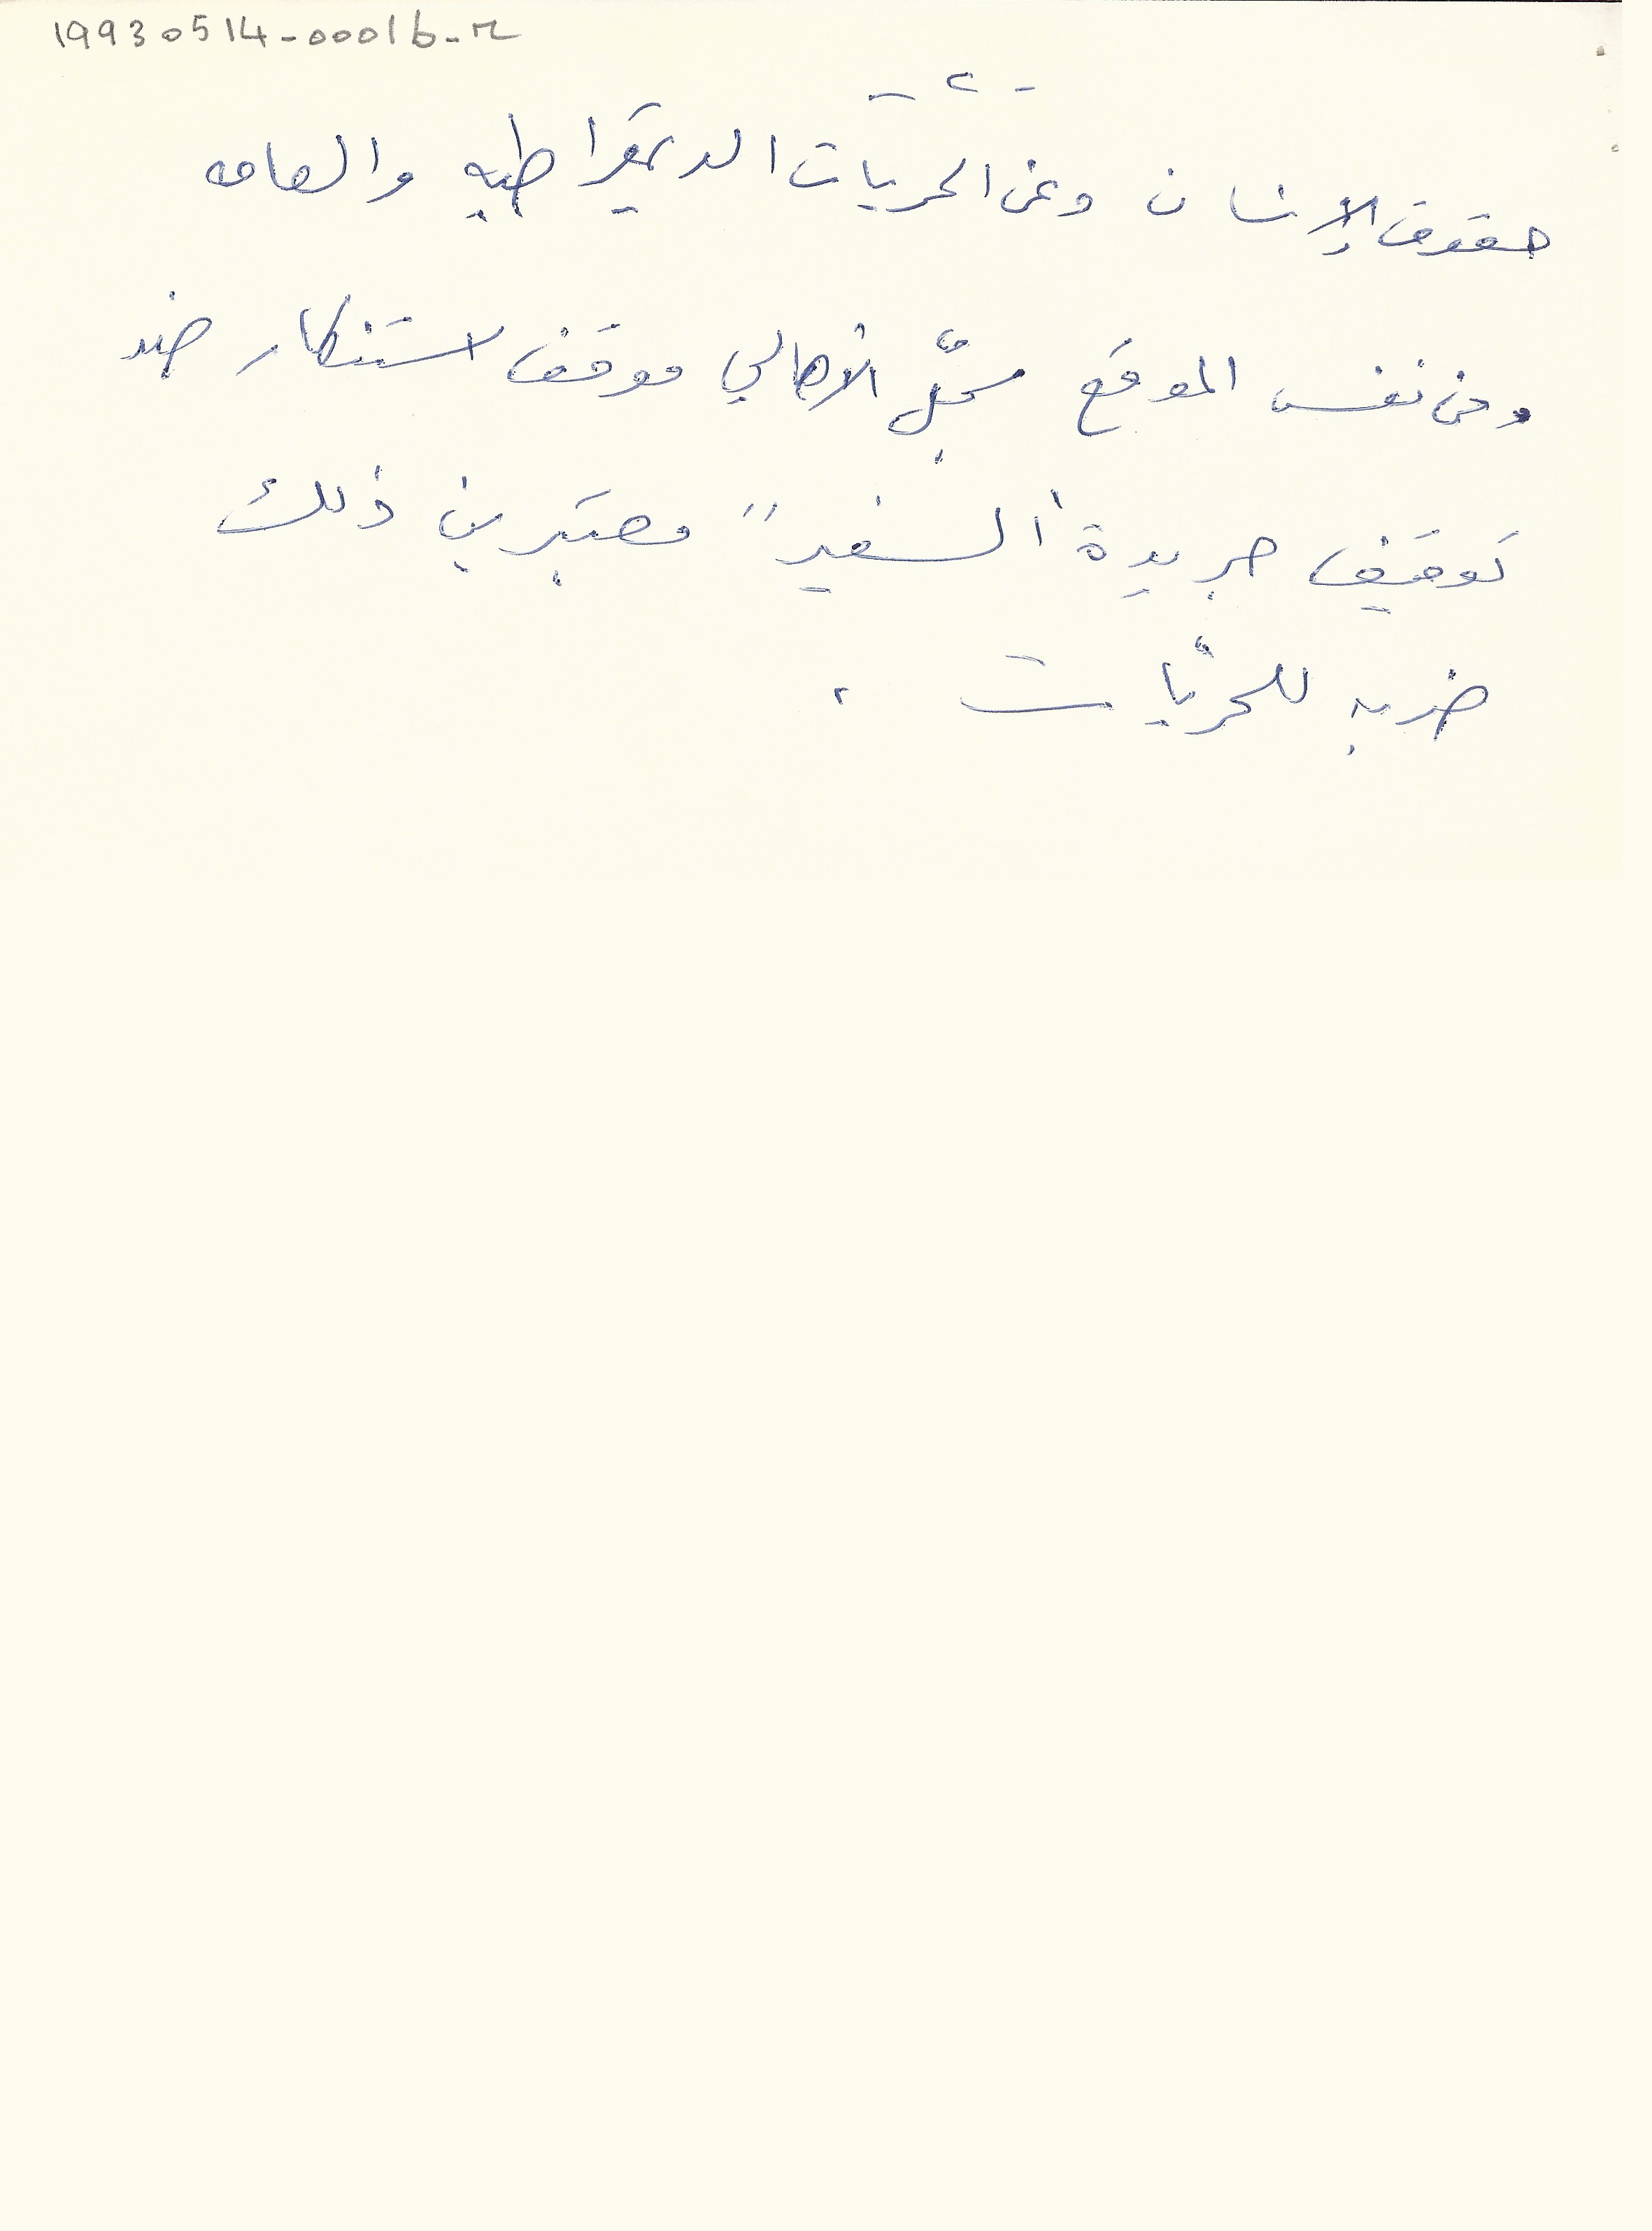 19930514-00016-r
- ٢ -
حقوق الإنسان وعن الحريات الديمقراطيه والعامه
ومن نفس الموقع سجّل الأهالي موقف استنكار ضد
توقيف جريدة "السفير" معتبرين ذلك
ضربه للحريّات .